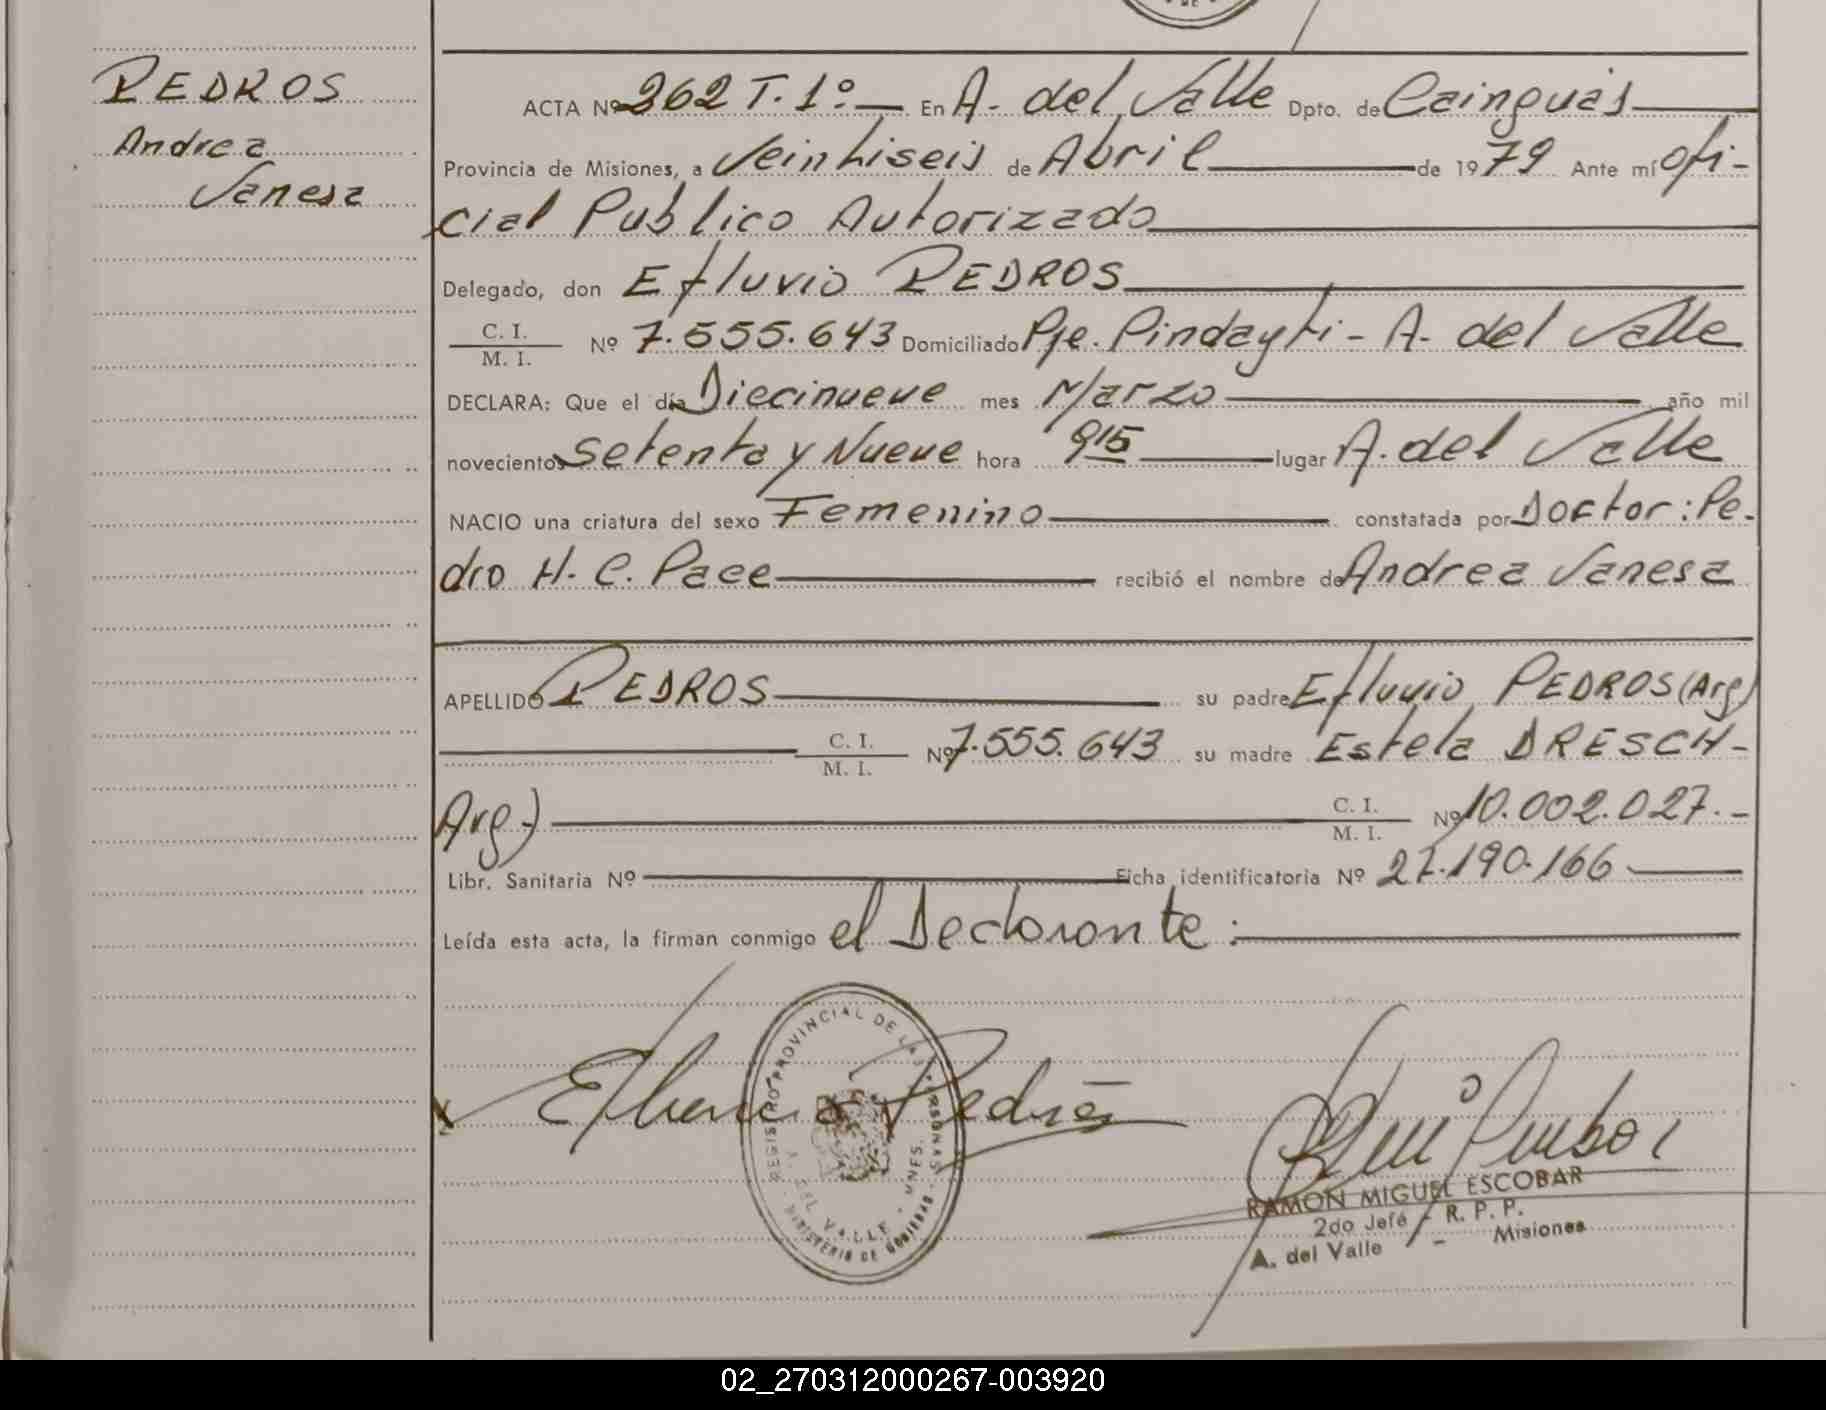 PEDROS
Andrea
Vanesa
ACTA Nº 262 T. 1º.— En A. del Valle Dpto. de Cainguás
Provincia de Misiones, a Veintiseis de Abril de 1979 Ante mí Ofi-
cial Publico Autorizado
Delegado, don Efluvio PEDROS
C. I.
M. I.
Nº 7.555.643 Domiciliado Pje. Pindayti - A. del Valle
DECLARA: Que el día Diecinueve mes Marzo año mil
novecientos setenta y Nueve hora 915 lugar A. del Valle
NACIO una criatura del sexo Femenino constatada por Doctor: Pe-
dro H. C. Pace recibió el nombre de Andrea Vanesa
APELLIDO PEDROS su padre Efluvio PEDROS (Arg)
C. I.
M. I.
Nº 7.555.643 su madre Estela DRESCH-
Arg-)
C. I.
M. I.
Nº 10.002.027.-
Libr. Sanitaria Nº Ficha identificatoria Nº 27.190.166
Leída esta acta, la firman conmigo el Declarante:
REGISTRO PROVINCIAL DE LAS PERSONAS
DEL VALLE - MNES.
MINISTERIO DE GOBIERNO
Pedros
RAMON MIGUEL ESCOBAR
2do Jefe - R. P. P.
A. del Valle - Misiones
02_270312000267-003920